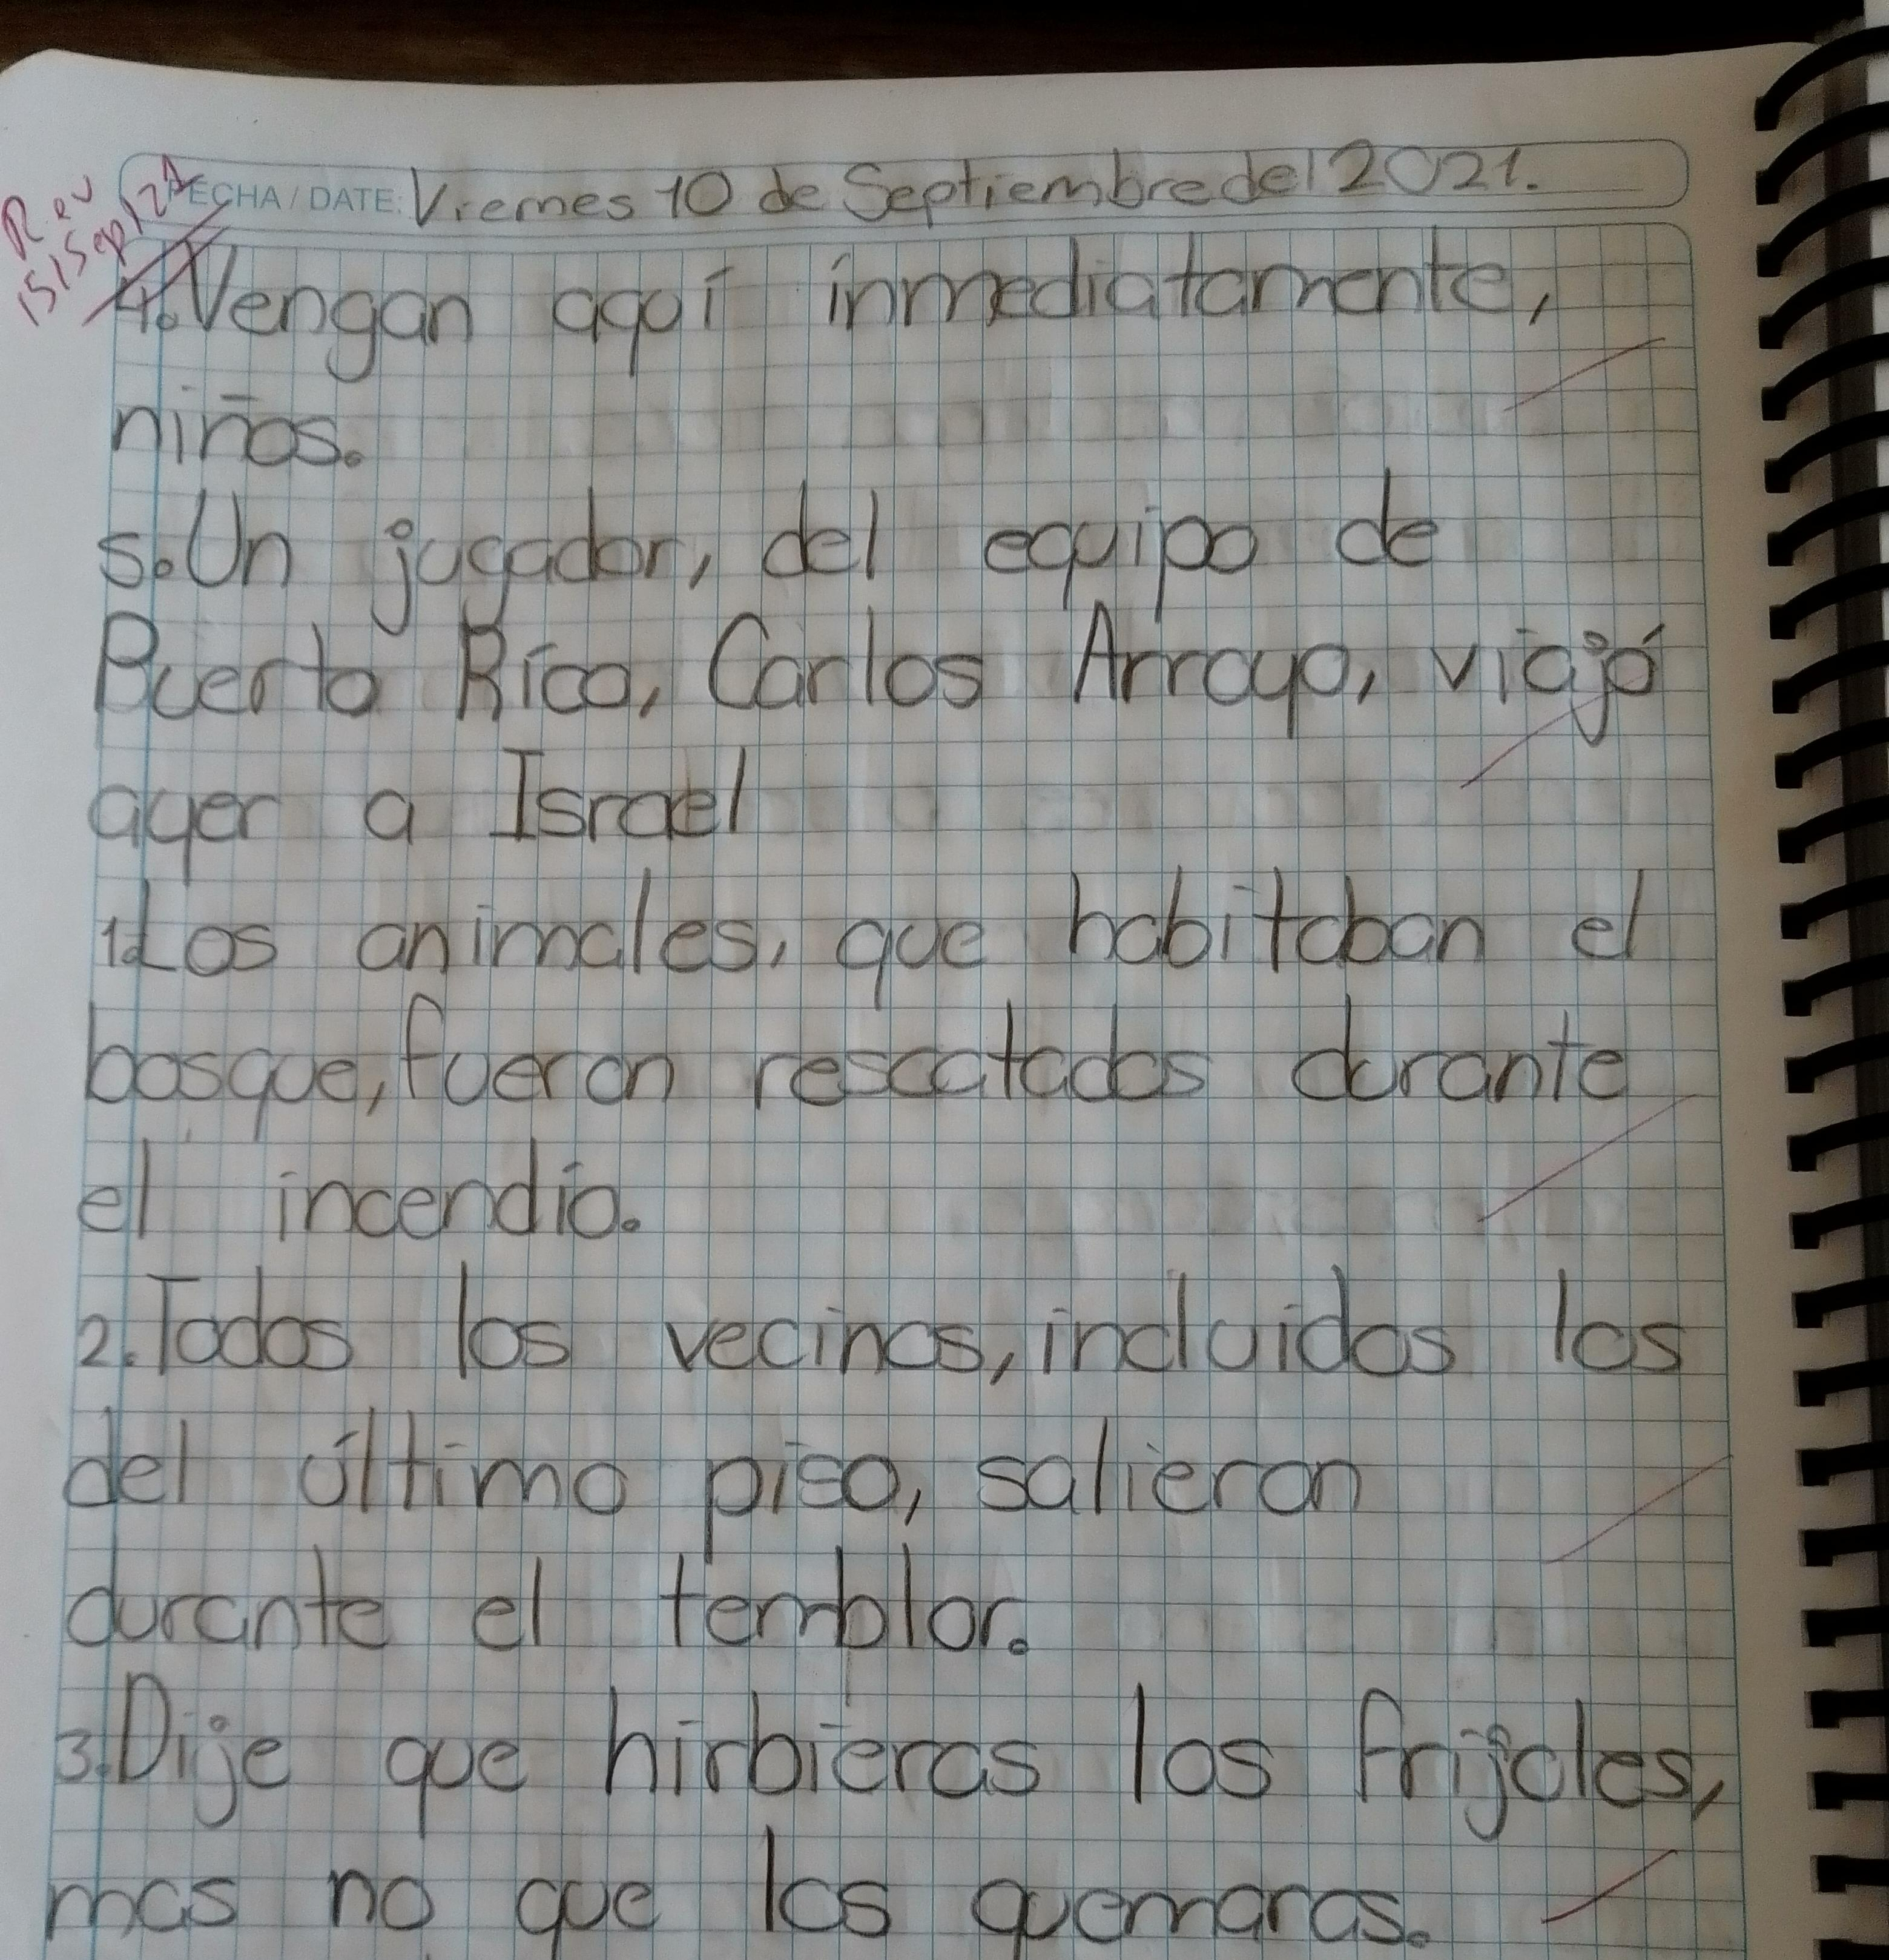 Rev
15/Sep/21
FECHA/DATE: Viernes 10 de Septiembre del 2021.
4. Vengan aquí inmediatamente,
niños.
5. Un jugador, del equipo de
Puerto Rico, Carlos Arroyo, viajó
ayer a Israel
1. Los animales, que habitaban el
bosque, fueron rescatados durante
el incendio.
2. Todos los vecinos, incluidos los
del último piso, salieron
durante el temblor.
3. Dije que hirbieras los frijoles,
mas no que los quemaras.